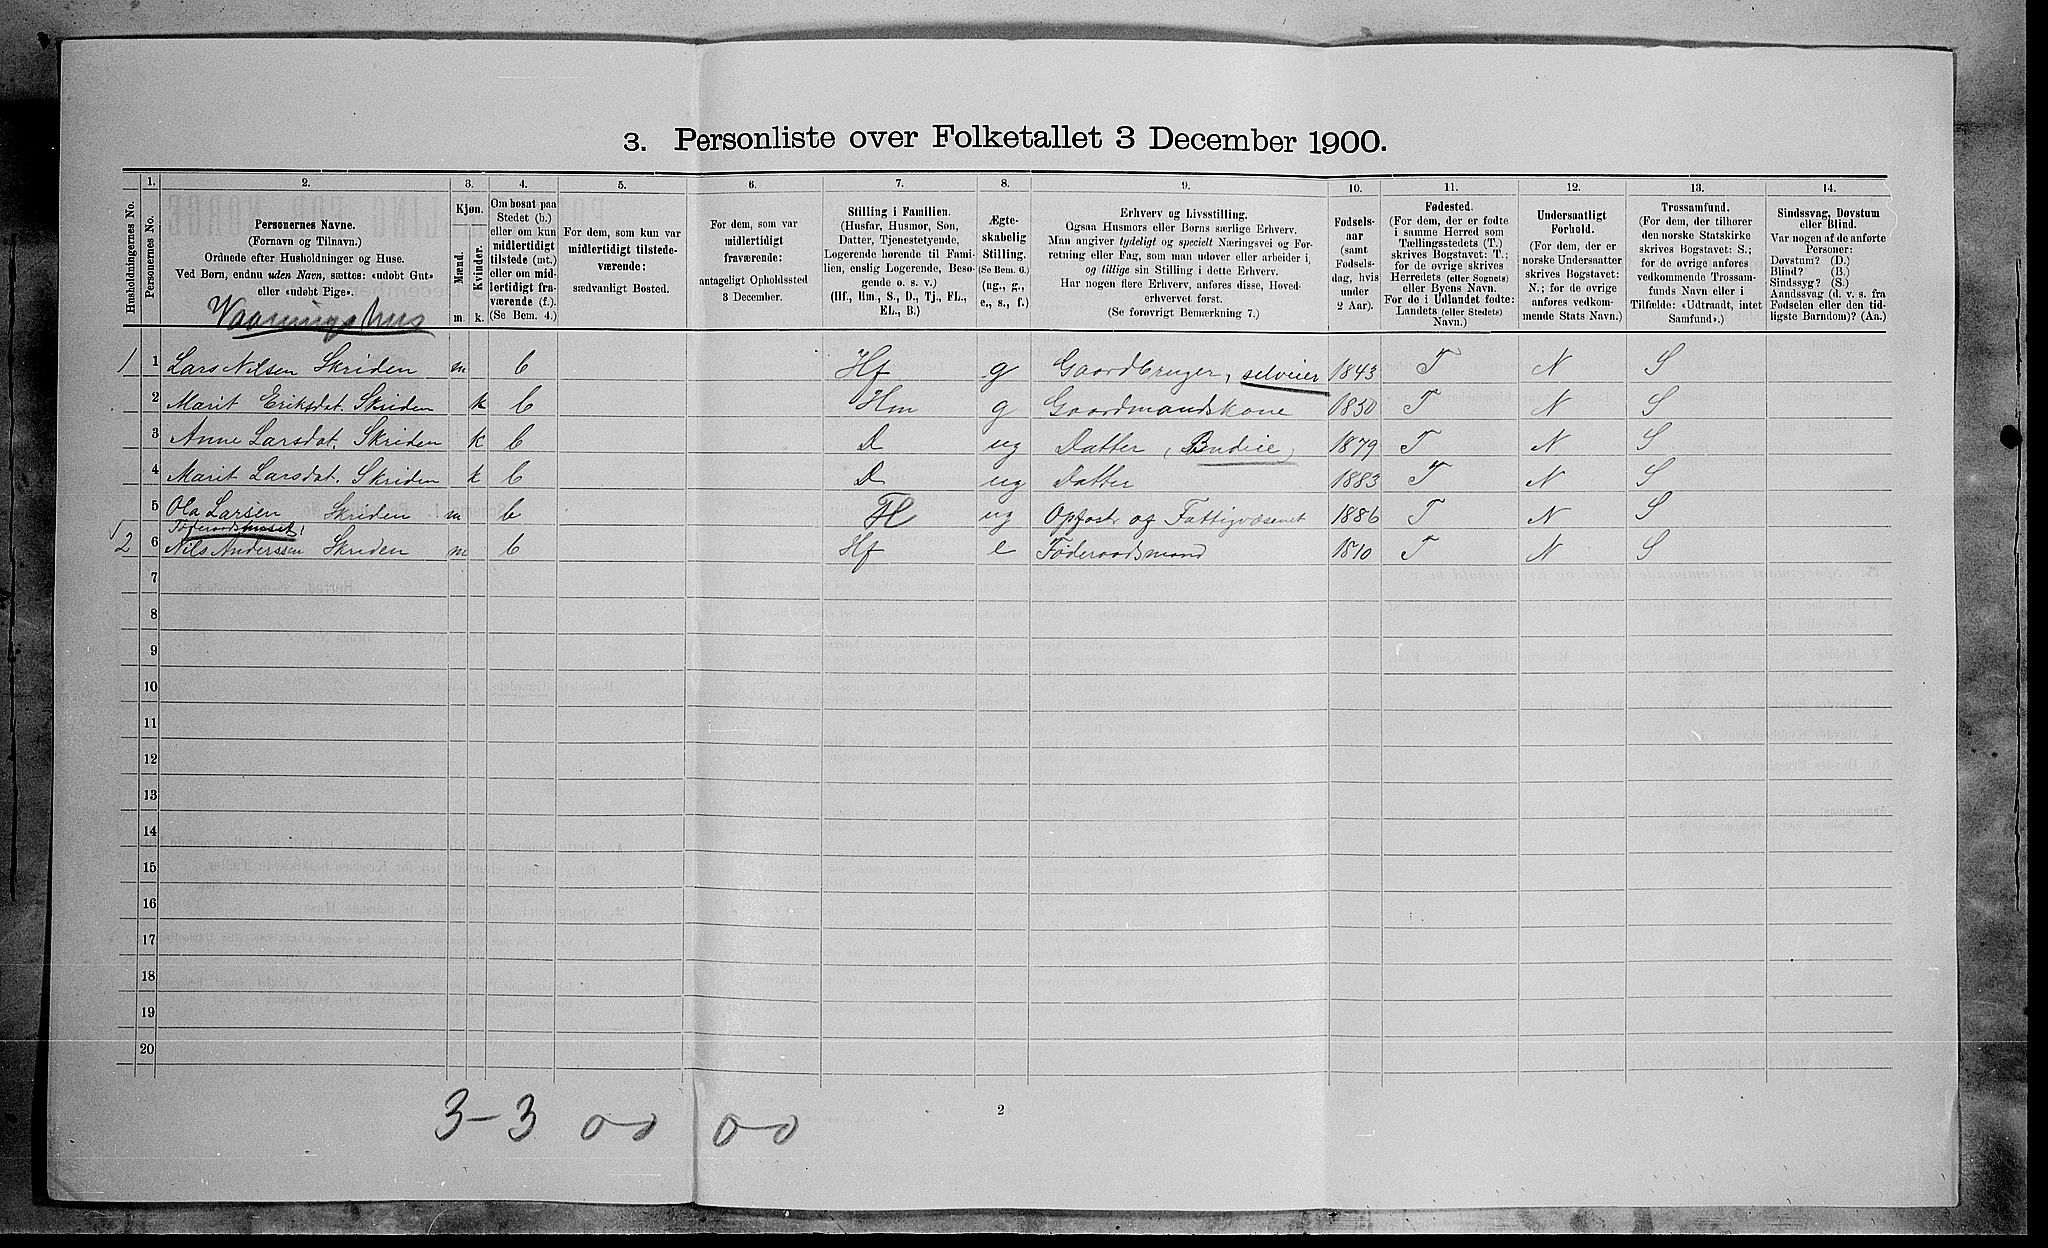 3. Personliste over Folketallet 3 December 1900.
1. 2. 3. 4. 5. 6. 7. 8. 9. 10. 11. 12. 13. 14.
Husholdningernes No.
Personernes No.
Personernes Navne.
(Fornavn og Tilnavn.)
Ordnede efter Husholdninger og Huse.
Ved Børn, endnu uden Navn, sættes: «udøbt Gut»
eller «udøbt Pige».
Vaaningshus
Kjøn.
Mænd.
Kvinder.
m. k.
Om bosat paa
Stedet (b.)
eller om kun
midlertidigt
tilstede (mt.)
eller om mid-
lertidigt fra-
værende (f.)
(Se Bem. 4.)
For dem, som kun var
midlertidigt tilstede-
værende:
sædvanligt Bosted.
For dem, som var
midlertidigt
fraværende:
antageligt Opholdssted
3 December.
Stilling i Familien.
(Husfar, Husmor, Søn,
Datter, Tjenestetyende,
Logerende hørende til Fami-
lien, enslig Logerende, Besø-
gende o. s. v.)
(Hf., Hm., S., D., Tj., FL.,
EL., B.)
Ægte-
skabelig
Stilling.
(Se Bem. 6.)
(ug., g.,
e., s., f.)
Erhverv og Livsstilling.
Ogsaa Husmors eller Børns særlige Erhverv.
Man angiver tydeligt og specielt Næringsvei og For-
retning eller Fag, som man udover eller arbeider i,
og tillige sin Stilling i dette Erhverv.
Har nogen flere Erhverv, anføres disse, Hoved-
erhvervet først.
(Se forøvrigt Bemærkning 7.)
Fødsels-
aar
(samt
Fødsels-
dag, hvis
under
2 Aar).
Fødested.
(For dem, der er fødte
i samme Herred som
Tællingsstedets (T.)
skrives Bogstavet: T.;
for de øvrige skrives
Herredets (eller Sognets)
eller Byens Navn.
For de i Udlandet fødte:
Landets (eller Stedets)
Navn.)
Undersaatligt
Forhold.
(For dem, der er
norske Undersaatter
skrives Bogstavet:
N.; for de øvrige
anføres vedkom-
mende Stats Navn.)
Trossamfund.
(For dem, der tilhører
den norske Statskirke
skrives Bogstavet: S.;
for de øvrige anføres
vedkommende Trossam-
funds Navn eller i
Tilfælde: «Udtraadt, intet
Samfund».)
Sindssvag, Døvstum
eller Blind.
Var nogen af de anførte
Personer:
Døvstum? (D.)
Blind? (B.)
Sindssyg? (S.)
Aandssvag (d. v. s. fra
Fødselen eller den tid-
ligste Barndom)? (Aa.)
1 1 Lars Nilsen Skriden m b Hf g Gaardbruger, selveier 1843 T N S
2 Marit Eriksdat. Skriden k b Hm g Gaardmandskone 1850 T N S
3 Anne Larsdat. Skriden k b D ug Datter, Budeie 1879 T N S
4 Marit Larsdat. Skriden k b D ug Datter 1883 T N S
5 Ola Larsen Skriden m b Fl ug Opfostr af Fattigvæsenet 1886 T N S
Føderaadshuset
2 6 Nils Anderssen Skriden m b Hf e Føderaadsmand 1810 T N S
7
8
9
10
11
12
13
14
15
16
17
18
19
20
3-3 0-0 0-0
2